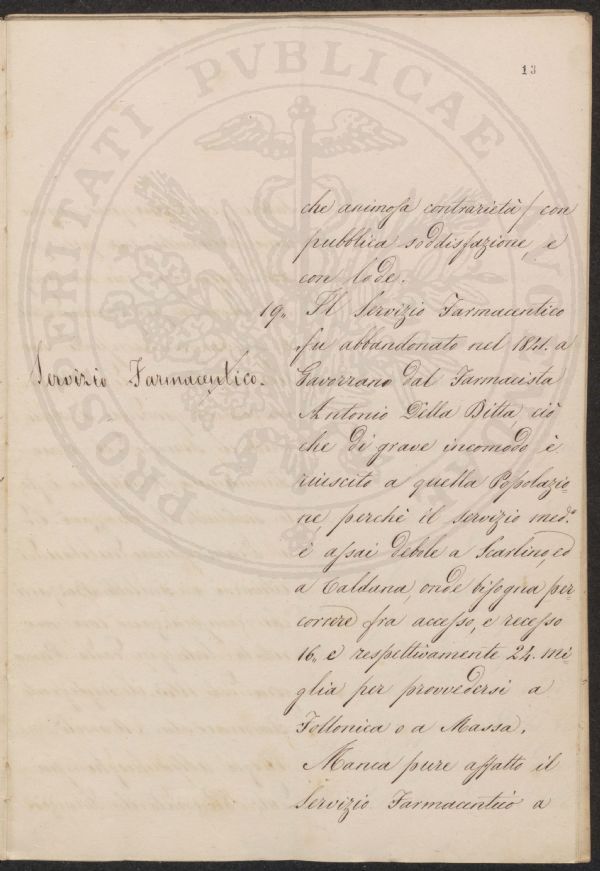 13
che animosa contrarietà / con
pubblica soddisfazione, e
con lode.
19,, Il Servizio Farmaceutico
fu abbandonato nel 1841. a
Servizio Farmaceutico.
Gavorrano dal Farmacista
Antonio Della Bitta, ciò
che di grave incomodo è
riuscito a quella Popolazio-
ne, perchè il servizio med.o
è assai debole a Scarlino, ed
a Caldana, onde bisogna per-
correre fra accesso, e recesso
16,, e respettivamente 24. mi-
glia per provvedersi a
Follonica o a Massa.
Manca pure affatto il
Servizio Farmaceutico a
PROSPERITATI PVBLICAE